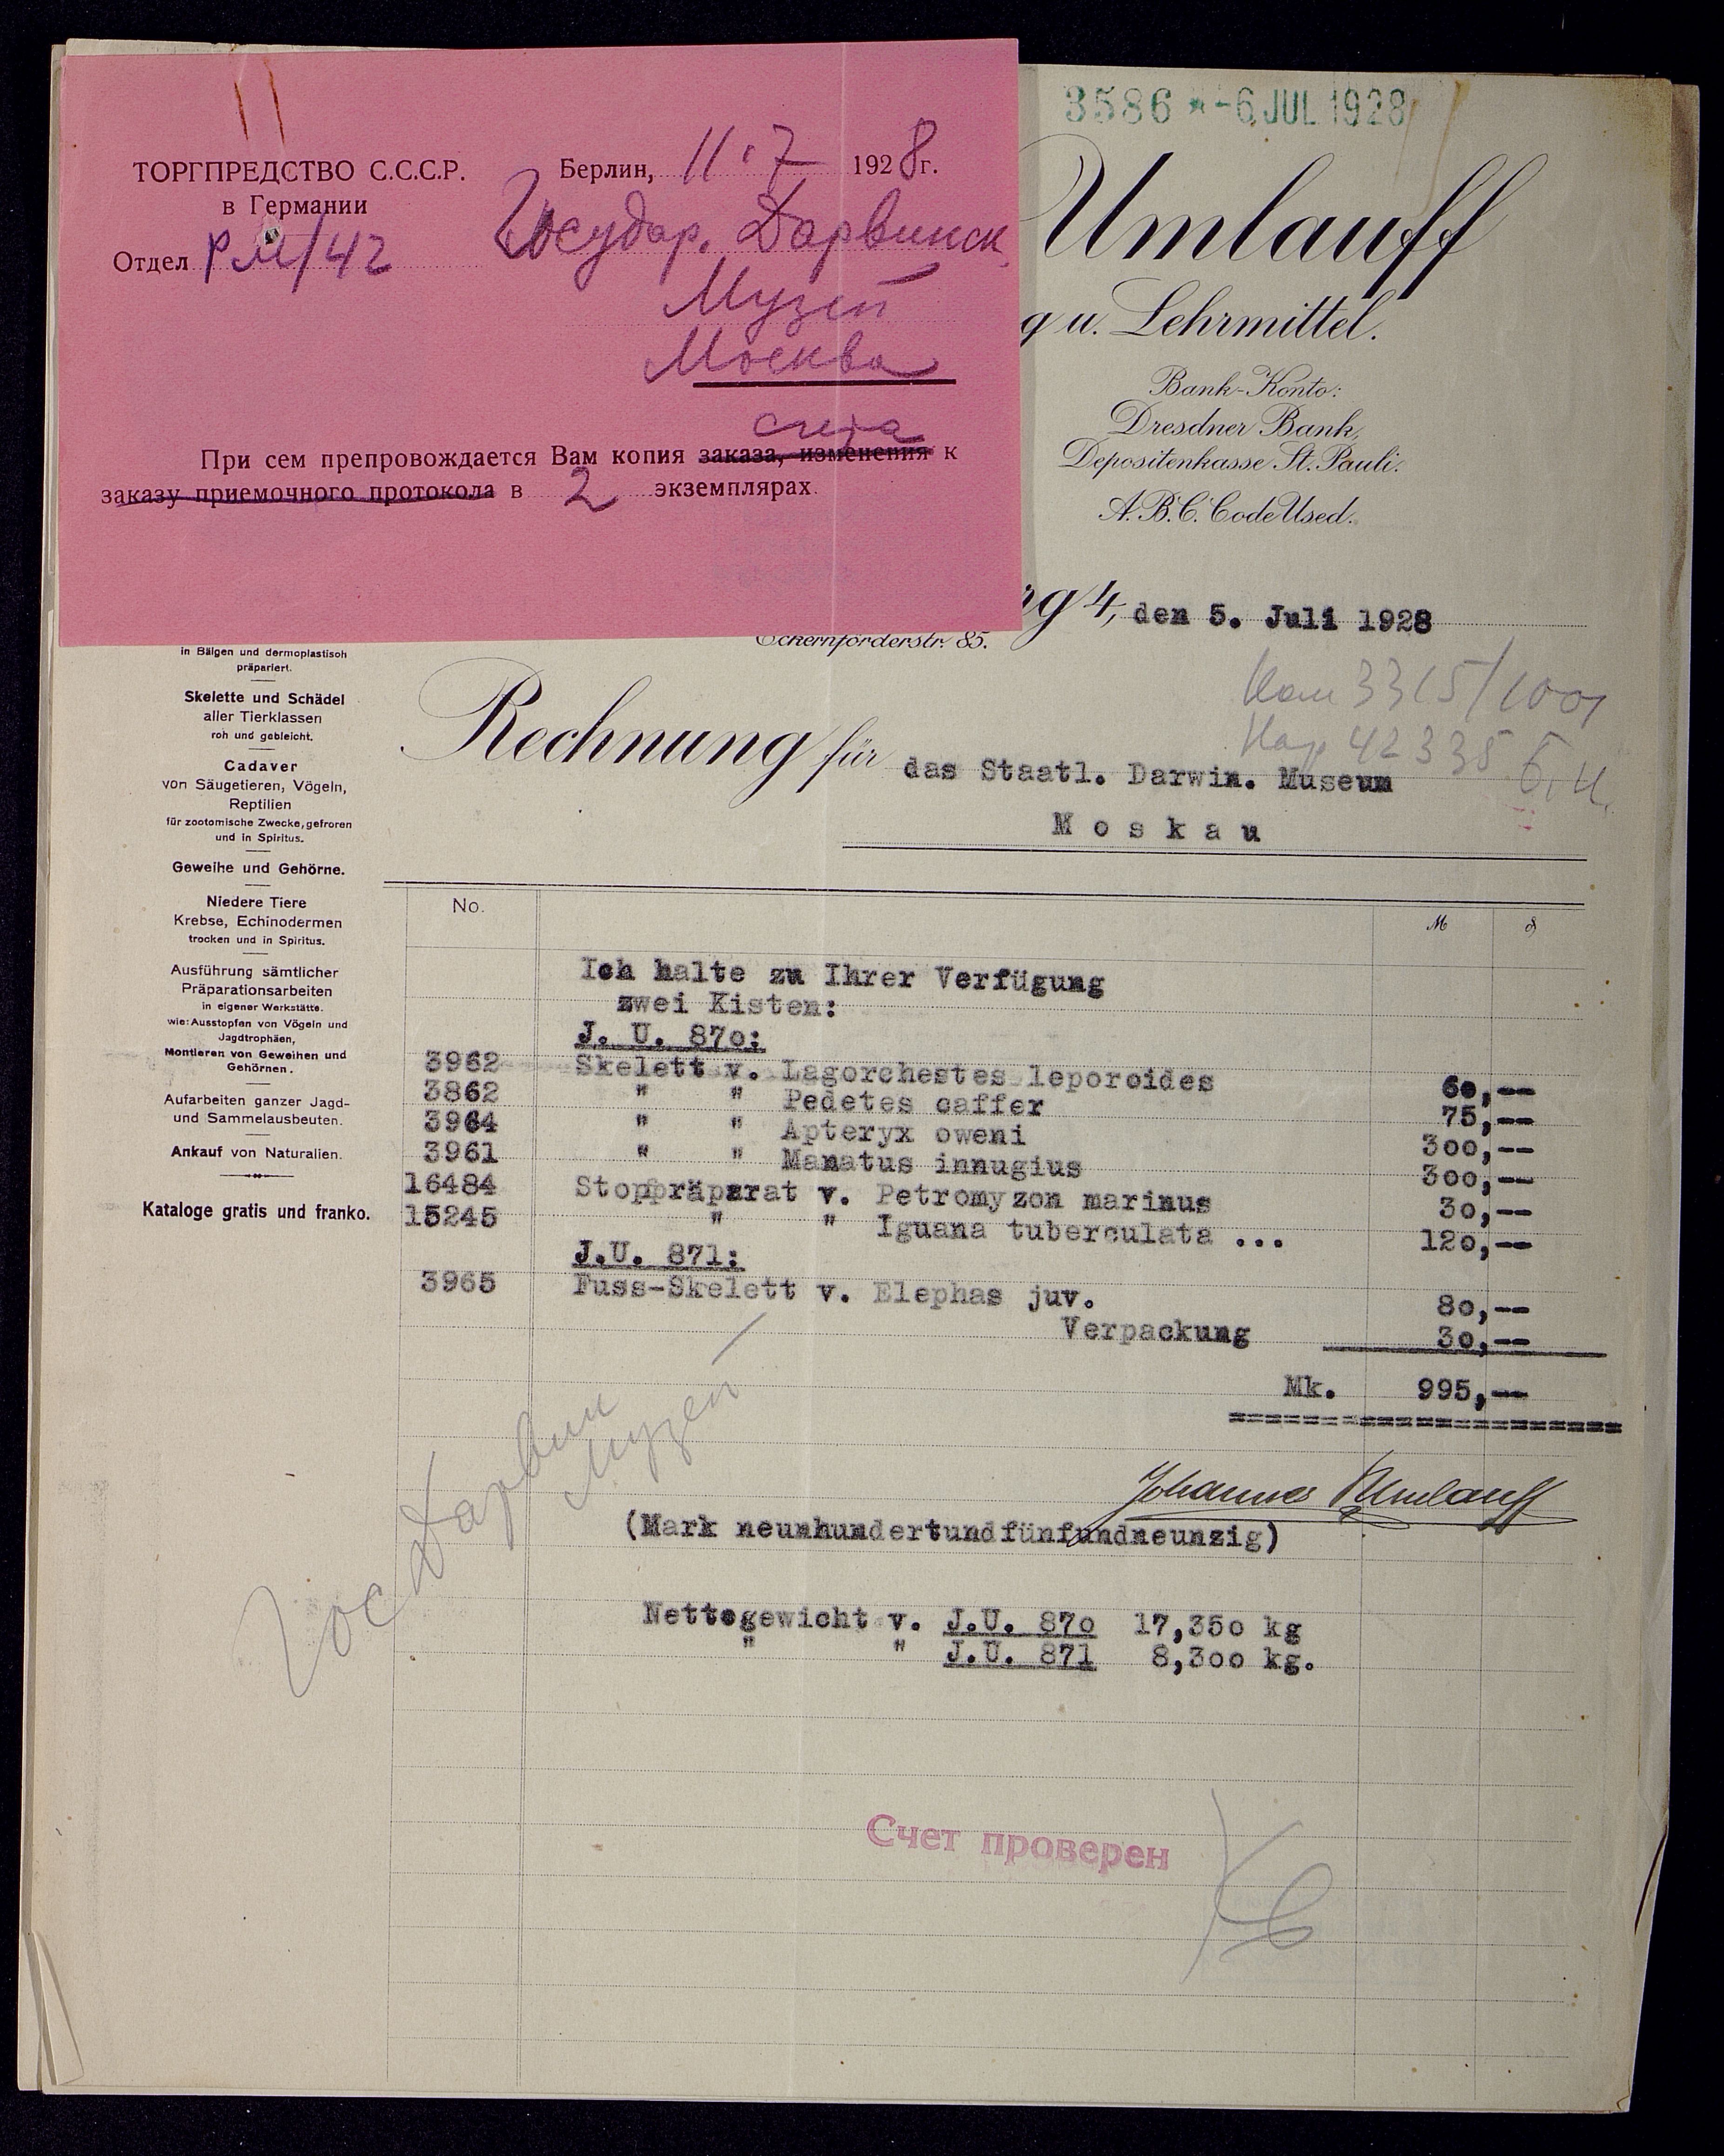 ТОРГПРЕДСТВО С.С.С.Р.
в Германии
Отдел РМ/42
Берлин, 11.7 1928г.
Государ. Дарвинск.
Музей
Москва
счета
При сем препровождается Вам копия заказа, изменения к
заказу приемочного протокола в 2 экземплярах.
3586 * -6 JUL 1928
Umlauff
g u. Lehrmittel.
Bank-Konto:
Dresdner Bank,
Depositenkasse St. Pauli.
A.B.C. Code Used.
rg 4, den 5. Juli 1928
Eckernförderstr. 85.
3315/1001
42335
Rechnung für das Staatl. Darwin. Museum
Moskau
in Bälgen und dermoplastisch
präpariert.
Skelette und Schädel
aller Tierklassen
roh und gebleicht.
Cadaver
von Säugetieren, Vögeln,
Reptilien
für zootomische Zwecke, gefroren
und in Spiritus.
Geweihe und Gehörne.
Niedere Tiere
Krebse, Echinodermen
trocken und in Spiritus.
Ausführung sämtlicher
Präparationsarbeiten
in eigener Werkstätte.
wie: Ausstopfen von Vögeln und
Jagdtrophäen,
Montieren von Geweihen und
Gehörnen.
Aufarbeiten ganzer Jagd-
und Sammelausbeuten.
Ankauf von Naturalien.
Kataloge gratis und franko.
No. M ₰
Ich halte zu Ihrer Verfügung
zwei Kisten:
J. U. 870:
3962 Skelett v. Lagorchestes leporoides 60,--
3862 " " Pedetes caffer 75,--
3964 " " Apteryx oweni 300,--
3961 " " Manatus innugius 300,--
16484 Stopfpräparat v. Petromyzon marinus 30,--
15245 " " Iguana tuberculata ... 120,--
J.U. 871:
3965 Fuss-Skelett v. Elephas juv. 80,--
Verpackung 30,--
Mk. 995,--
Johannes Umlauff
(Mark neunhundertundfünfundneunzig)
Гос Дарвин
Музей
Nettogewicht v. J.U. 870 17,350 kg
" " J.U. 871 8,300 kg.
Счет проверен